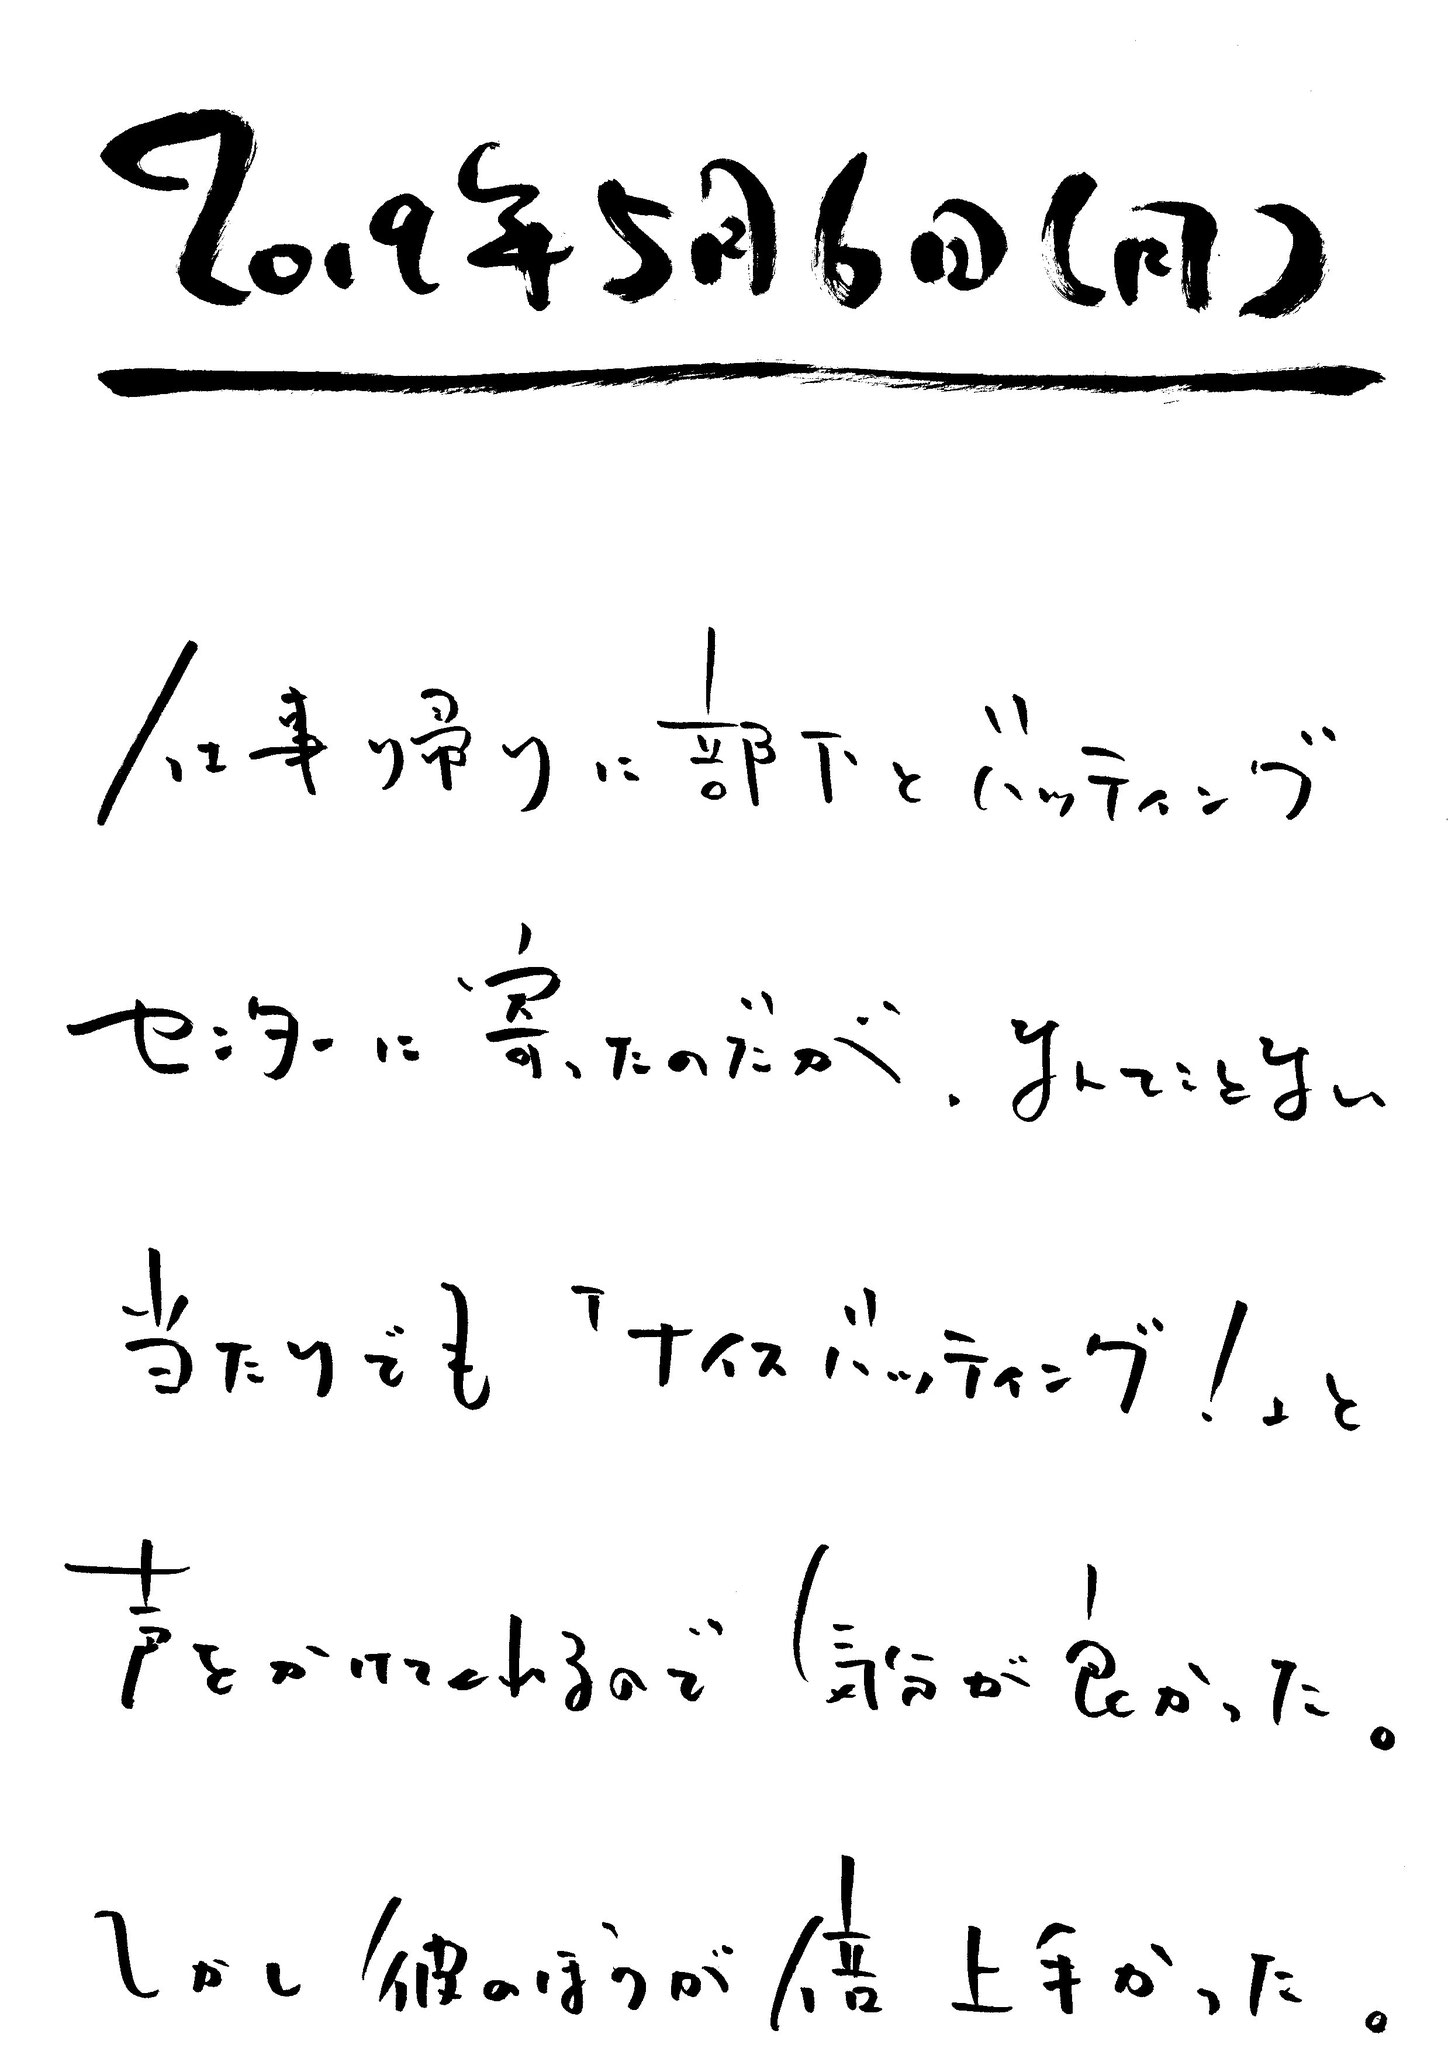 2019年5月6日(月)
仕事帰りに部下とバッティング
センターに寄ったのだが、なんてことない
当たりでも「ナイスバッティング!」と
声をかけてくれるので気分が良かった。
しかし彼のほうが倍上手かった。